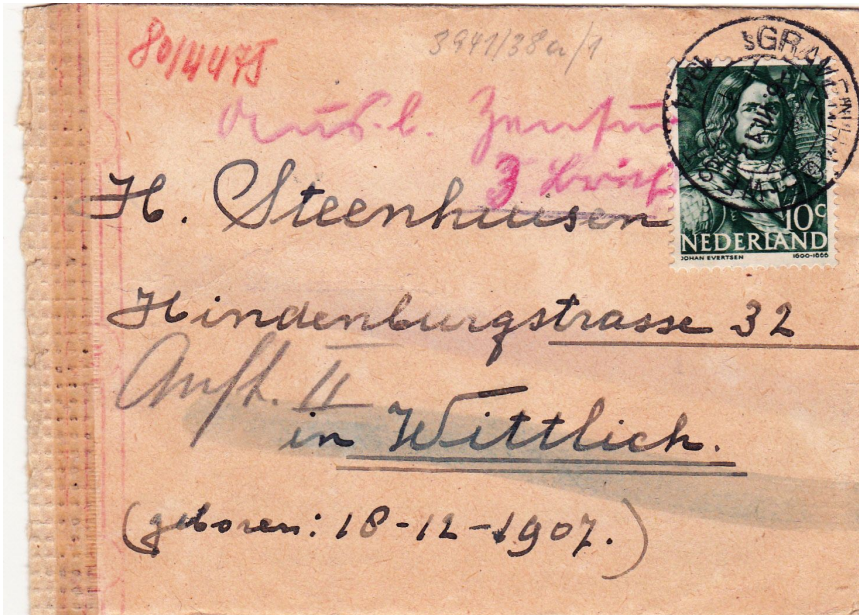 80/4475
3941/38a/1
Ausl. Zensur
3 Brief
H. Steenhuisen
10c
NEDERLAND
JOHAN EVERTSEN 1600-1666
Hindenburgstrasse 32
Anst. II
in Wittlich.
(geboren: 18-12-1907.)